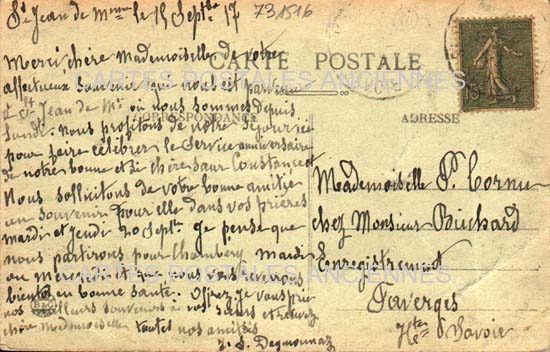 St Jean de M le 15 Septbre 17
731516
Merci chère Mademoiselle de votre
affectueux souvenir qui nous est parvenu
à St Jean de M où nous sommes depuis
lundi. Nous profitons de notre séjour ici
pour faire célébrer le service anniversaire
de notre bonne et si chère sœur Constance
Nous sollicitons de votre bonne amitié
un souvenir pour elle dans vos prières
mardi et jeudi 20 Septb. Je pense que
nous partirons pour Chambéry mardi
ou mercredi et que nous vous reverrons
bientôt en bonne santé. Offrez je vous prie
nos meilleurs souvenirs à vos sœurs et recevez
chère Mademoiselle toutes nos amitiés
CARTE POSTALE
CORRESPONDANCE
ADRESSE
Mademoiselle P. Cornu
chez Monsieur Buchard
Enregistrement
Faverges
Hte Savoie
CARTES POSTALES ANCIENNES
CARTES POSTALES ANCIENNES